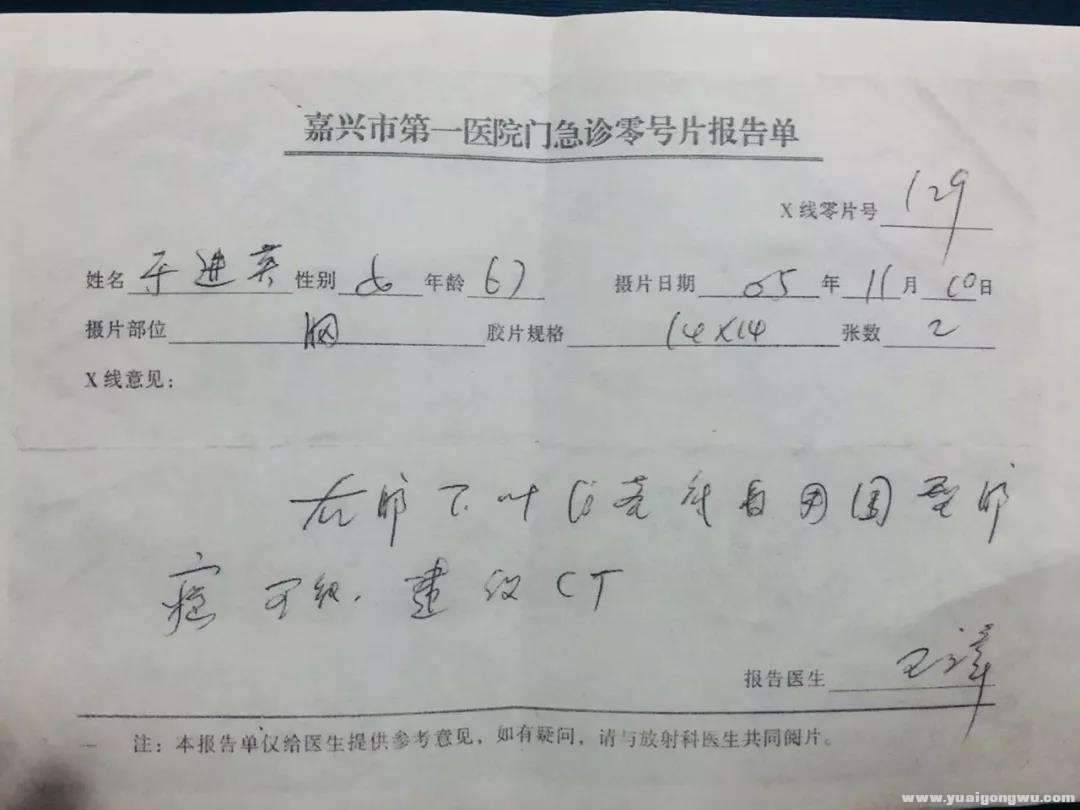 嘉兴市第一医院门急诊零号片报告单
X线零片号 129
姓名 于进英 性别 女 年龄 67 摄片日期 05 年 11 月 10 日
摄片部位 胸 胶片规格 14×14 张数 2
X线意见：
右肺下叶 周围型肺
癌可能．建议CT
报告医生 王
注：本报告单仅给医生提供参考意见，如有疑问，请与放射科医生共同阅片。
www.yuaigongwu.com